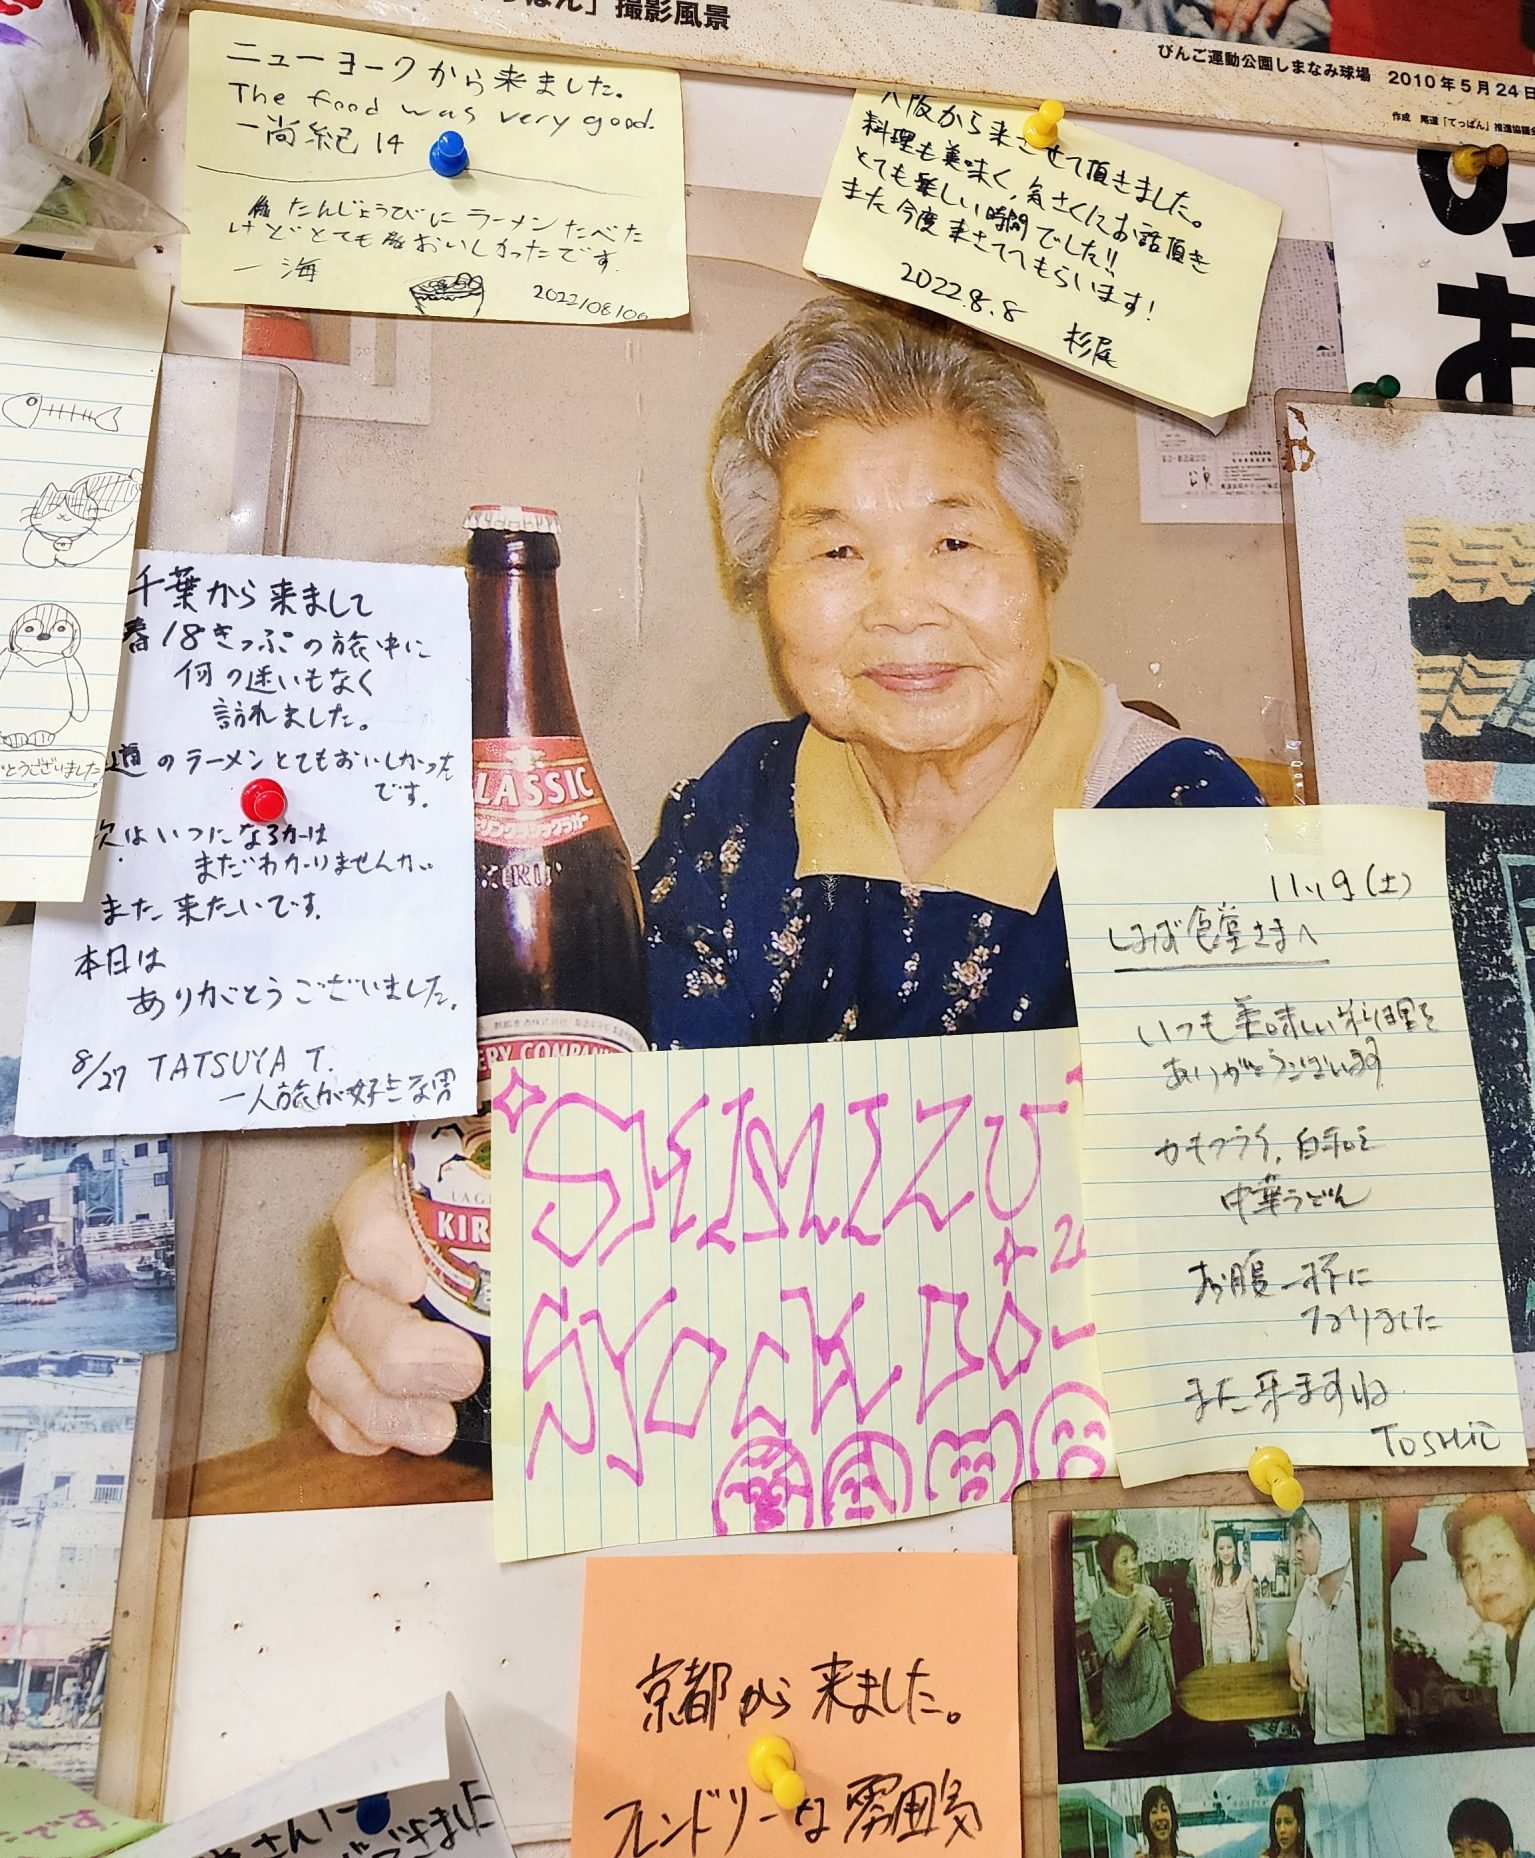 っぱん」撮影風景
びんご運動公園しまなみ球場 2010年5月24日
作成 尾道「てっぱん」推進協議会
ニューヨークから来ました。
The food was very good.
一尚紀 14
たんじょうびにラーメンたべた
けどとてもおいしかったです。
一海
2022/08/06
大阪から来させて頂きました。
料理も美味く、気さくにお話頂き
とても楽しい時間でした!!
また今度来させてもらいます!
2022.8.8
杉尾
千葉から来まして
春18きっぷの旅中に
何の迷いもなく
訪れました。
道のラーメンとてもおいしかった
です。
次はいつになるかは
まだわかりませんが
また来たいです。
本日は
ありがとうございました。
8/27 TATSUYA T.
一人旅が好きな男
とうございました
CLASSIC
キリンクラシックラガー
KIRIN
ERY COMPAN
LAGE
KIR
SHIMIZU
11.19(土)
しまば食堂さまへ
いつも美味しい料理を
ありがとうございます
カキフライ、白和え
中華うどん
お腹一杯に
なりました
また来ますね
TOSHIE
京都から来ました。
フレンドリーな雰囲気
さん!
ございました
たです。
のお